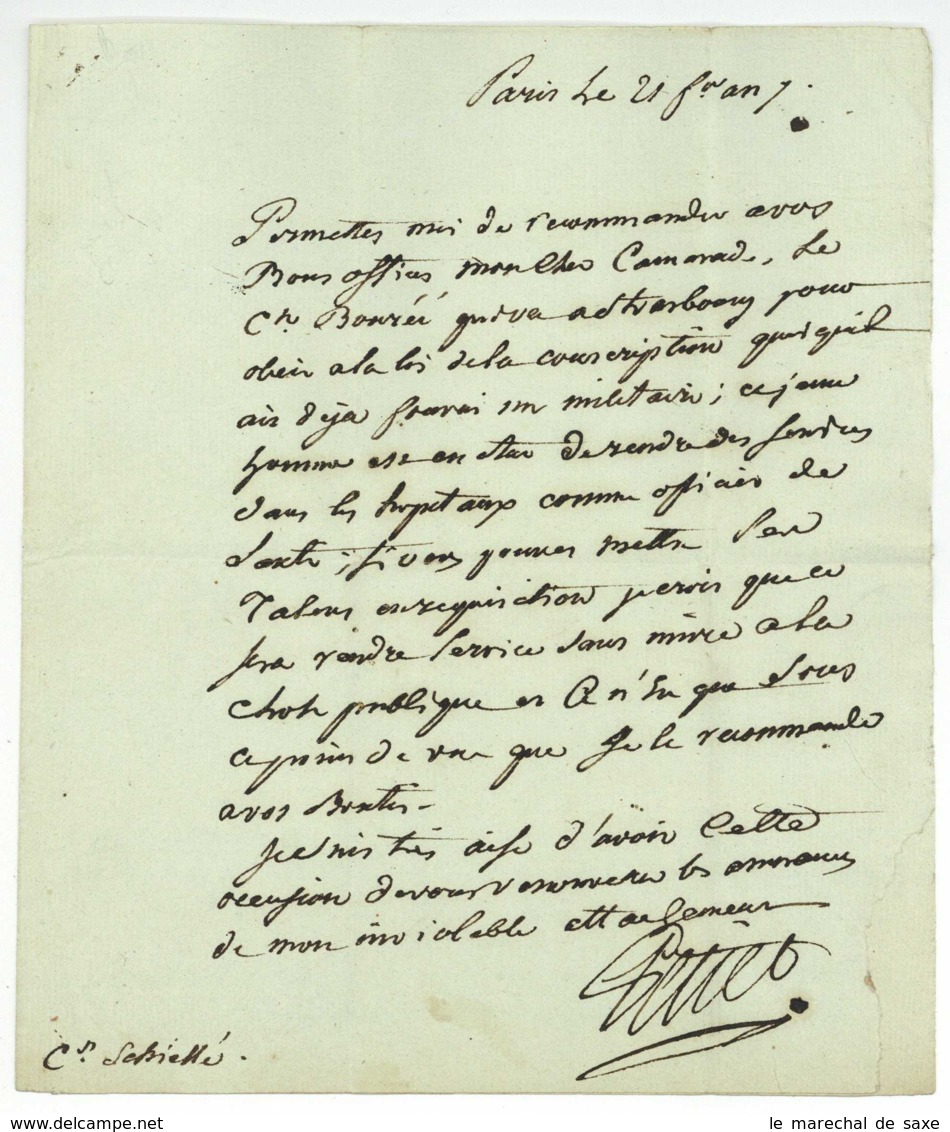 Paris le 21 f^or an 7.
Permettes moi de recommander avos
Bons offices mon Cher Camarade, Le
C^en Bouréé quiva a Strasbourg pour
obeir a la loi dela conscription quoiquil
ait deja fourni un militaire ; ce jeune
homme est en etat de rendre des services
dans les hopitaux comme officier de
Santé ; si vous pouves mettre Ses
Talens en requisition je crois que ce
sera rendre Service dans mivre a la
chose publique et Ce n'est que Sous
ce point de vue que je le recommande
avos Bontés -
je suis tres aise d'avoir Cette
occasion de vous renouveller les assurances
de mon inviolable attachement
C^en Schiellé.
le marechal de saxe